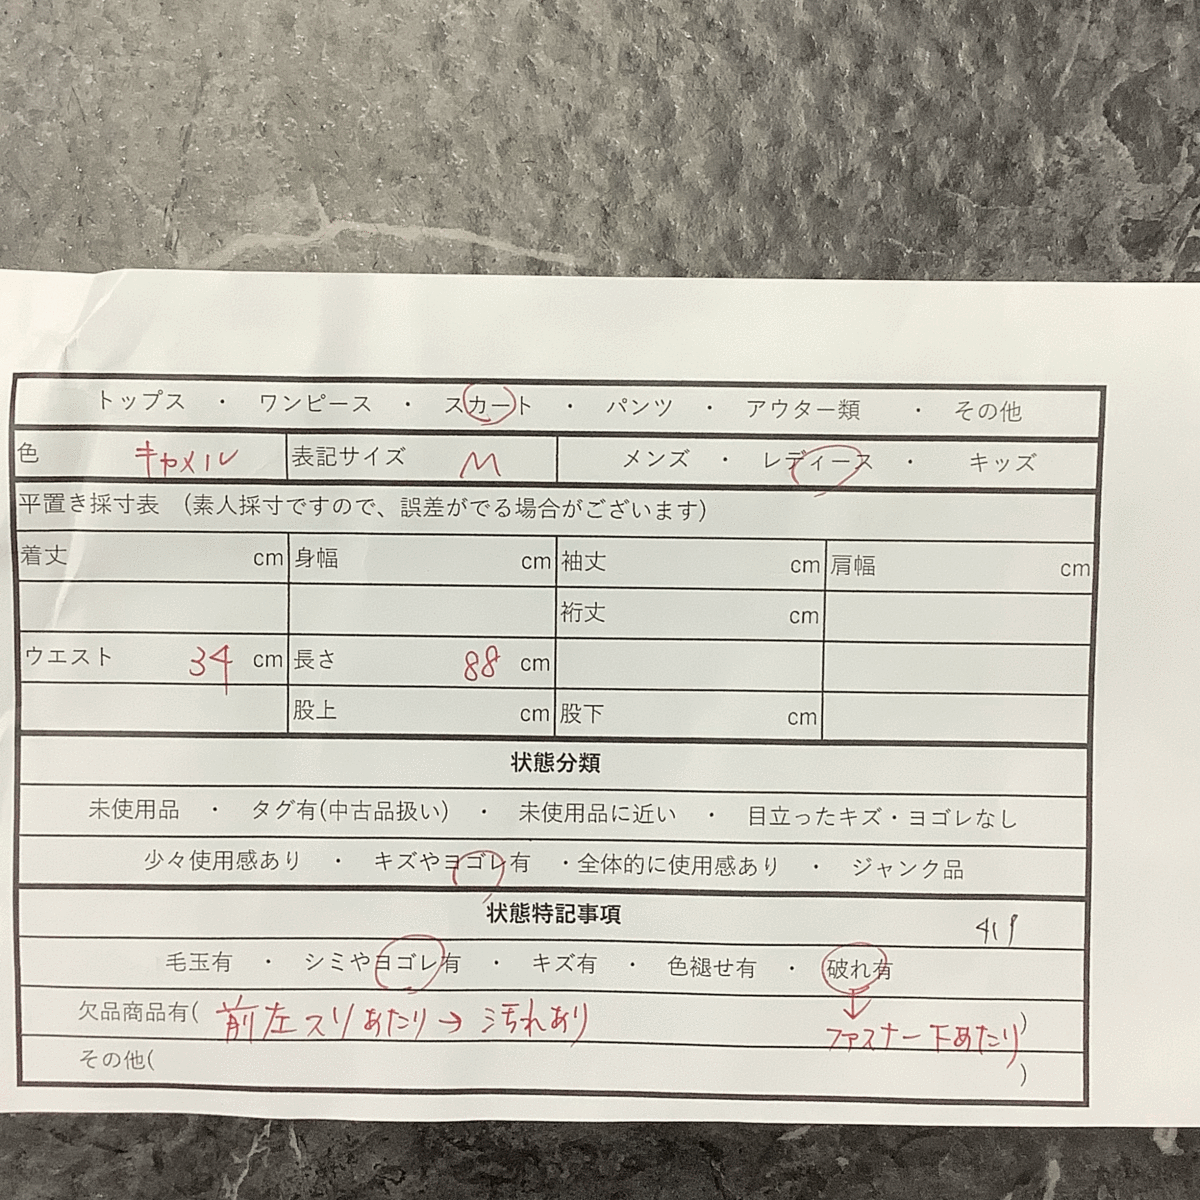 トップス ・ ワンピース ・ スカート ・ パンツ ・ アウター類 ・ その他
色 キャメル 表記サイズ M メンズ ・ レディース ・ キッズ
平置き採寸表 (素人採寸ですので、誤差がでる場合がございます)
着丈 cm 身幅 cm 袖丈 cm 肩幅 cm
裄丈 cm
ウエスト 34 cm 長さ 88 cm
股上 cm 股下 cm
状態分類
未使用品 ・ タグ有(中古品扱い) ・ 未使用品に近い ・ 目立ったキズ・ヨゴレなし
少々使用感あり ・ キズやヨゴレ有 ・全体的に使用感あり ・ ジャンク品
状態特記事項 419
毛玉有 ・ シミやヨゴレ有 ・ キズ有 ・ 色褪せ有 ・ 破れ有
欠品商品有( 前左スリあたり→汚れあり )
↓ファスナー下あたり
その他( )